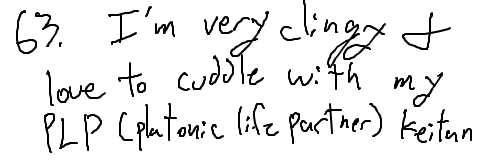 63. I'm very clingy &
love to cuddle with my
PLP (platonic life partner) Keitan